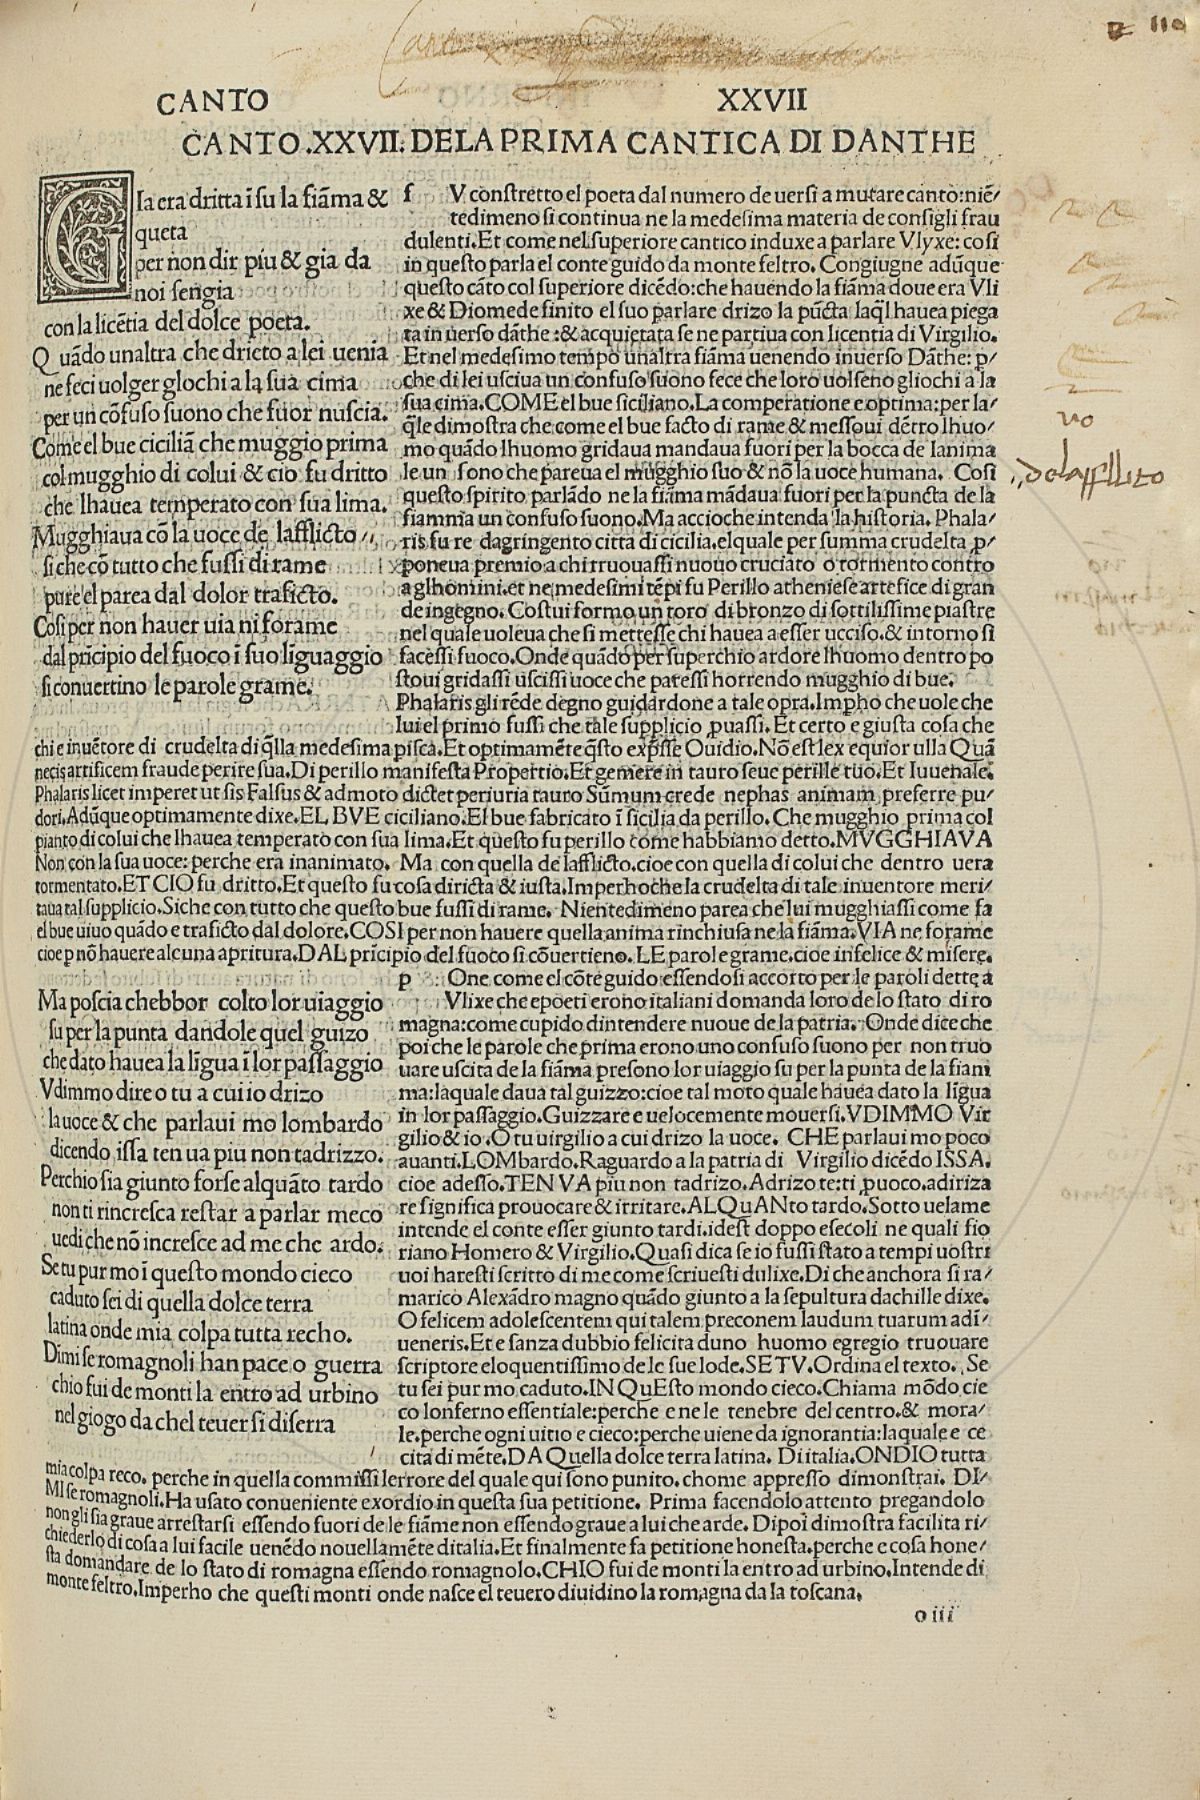 110
CANTO XXVII
CANTO .XXVII. DELA PRIMA CANTICA DI DANTHE
GIa era dritta ĩ su la fiãma &
queta
per non dir piu & gia da
noi sengia
con la licẽtia del dolce poeta.
Quãdo unaltra che drieto a lei uenia
ne feci uolger glochi a la sua cima
per un cõfuso suono che fuor nuscia.
Come el bue ciciliã che muggio prima
col mugghio di colui & cio fu dritto
che lhauea temperato con sua lima.
Mugghiaua cõ la uoce de lafflicto
si che cõ tutto che fussi di rame
pure el parea dal dolor traficto.
Cosi per non hauer uia ni forame
dal prĩcipio del fuoco ĩ suo lĩguaggio
si conuertino le parole grame.
sV constretto el poeta dal numero de uersi a mutare canto: niẽ/
tedimeno si continua ne la medesima materia de consigli frau
dulenti. Et come nel superiore cantico induxe a parlare Vlyxe: cosi
in questo parla el conte guido da monte feltro. Congiugne adũque
questo cãto col superiore dicẽdo: che hauendo la fiãma doue era Vli
xe & Diomede finito el suo parlare drizo la pũcta laq̃l hauea piega
ta in uerso dãthe: & acquietata se ne partiua con licentia di Virgilio.
Et nel medesimo tempo unaltra fiãma uenendo inuerso Dãthe: p/
che di lei usciua un confuso suono fece che loro uolseno gliochi a la
sua cima. COME el bue siciliano. La comperatione e optima: per la/
q̃le dimostra che come el bue facto di rame & messoui dẽtro lhuo/
mo quãdo lhuomo gridaua mandaua fuori per la bocca de lanima
le un sono che pareua el mugghio suo & nõ la uoce humana. Cosi
questo spirito parlãdo ne la fiãma mãdaua fuori per la puncta de la
fiamma un confuso suono. Ma accioche intenda la historia. Phala/
ris fu re dagringento citta di cicilia. elquale per summa crudelta p/
poneua premio a chi truouassi nuouo cruciato o tormento contro
a glhomini. et ne medesimi tẽpi fu Perillo atheniese artefice di gran
de ingegno. Costui formo un toro di bronzo di sottilissime piastre
nel quale uoleua che si mettesse chi hauea a esser ucciso. & intorno si
facessi fuoco. Onde quãdo per superchio ardore lhuomo dentro po
stoui gridassi uscissi uoce che patessi horrendo mugghio di bue.
Phalaris gli rẽde degno guidardone a tale opra. Impho che uole che
lui el primo fussi che tale supplicio puassi. Et certo e giusta cosa che
chi e inuẽtore di crudelta di q̃lla medesima pisca. Et optimamẽte q̃sto expsse Ouidio. Nõ est lex equior ulla Quã
necis artificem fraude perire sua. Di perillo manifesta Propertio. Et gemere in tauro seue perille tuo. Et Iuuenale.
Phalaris licet imperet ut sis Falsus & admoto dictet periuria tauro Sũmum crede nephas animam preferre pu/
dori. Adũque optimamente dixe. EL BVE ciciliano. El bue fabricato ĩ sicilia da perillo. Che mugghio prima col
pianto di colui che lhauea temperato con sua lima. Et questo fu perillo come habbiamo detto. MVGGHIAVA
Non con la sua uoce: perche era inanimato. Ma con quella de lafflicto. cioe con quella di colui che dentro uera
tormentato. ET CIO fu dritto. Et questo fu cosa diricta & iusta. Imperhoche la crudelta di tale inuentore meri/
taua tal supplicio. Siche con tutto che questo bue fussi di rame. Nientedimeno parea che lui mugghiassi come fa
el bue uiuo quãdo e traficto dal dolore. COSI per non hauere quella anima rinchiusa ne la fiãma. VIA ne forame
cioe p nõ hauere alcuna apritura. DAL prĩcipio del fuoco si cõuertieno. LE parole grame. cioe infelice & misere.
Ma poscia chebbor colto lor uiaggio
su per la punta dandole quel guizo
che dato hauea la lĩgua ĩ lor passaggio
Vdimmo dire o tu a cui io drizo
la uoce & che parlaui mo lombardo
dicendo issa ten ua piu non tadrizzo.
Perchio sia giunto forse alquãto tardo
non ti rincresca restar a parlar meco
uedi che nõ incresce ad me che ardo.
Se tu pur mo ĩ questo mondo cieco
caduto sei di quella dolce terra
latina onde mia colpa tutta recho.
Dimi se romagnoli han pace o guerra
chio fui de monti la entro ad urbino
nel giogo da chel teuer si diserra
pOne come el cõte guido essendosi accorto per le paroli dette a
Vlixe che epoeti erono italiani domanda loro de lo stato di ro
magna: come cupido dintendere nuoue de la patria. Onde dice che
poi che le parole che prima erono uno confuso suono per non truo
uare uscita de la fiãma presono lor uiaggio su per la punta de la fiam
ma: laquale daua tal guizzo: cioe tal moto quale hauea dato la lĩgua
in lor passaggio. Guizzare e uelocemente mouersi. VDIMMO Vir
gilio & io. O tu uirgilio a cui drizo la uoce. CHE parlaui mo poco
auanti. LOMbardo. Raguardo a la patria di Virgilio dicẽdo ISSA.
cioe adesso. TEN VA piu non tadrizo. Adrizo te: ti puoco. adiriza
re significa prouocare & irritare. ALQuANto tardo. Sotto uelame
intende el conte esser giunto tardi. idest doppo esecoli ne quali fio
riano Homero & Virgilio. Quasi dica se io fussi stato a tempi uostri
uoi haresti scritto di me come scriuesti dulixe. Di che anchora si ra/
marico Alexãdro magno quãdo giunto a la sepultura dachille dixe.
O felicem adolescentem qui talem preconem laudum tuarum adi/
ueneris. Et e sanza dubbio felicita duno huomo egregio truouare
scriptore eloquentissimo de le sue lode. SE TV. Ordina el texto. Se
tu sei pur mo caduto. IN QuEsto mondo cieco. Chiama mõdo cie
co lonferno essentiale: perche e ne le tenebre del centro. & mora/
le. perche ogni uitio e cieco: perche uiene da ignorantia: laquale e ce
cita di mẽte. DA Quella dolce terra latina. Di italia. ONDIO tutta
mia colpa reco. perche in quella commissi lerrore del quale qui sono punito. chome appresso dimonstrai. DI/
MI se romagnoli. Ha usato conueniente exordio in questa sua petitione. Prima facendolo attento pregandolo
non gli sia graue arrestarsi essendo fuori de le fiãme non essendo graue a lui che arde. Dipoi dimostra facilita ri/
chiederlo di cosa a lui facile uenẽdo nouellamẽte ditalia. Et finalmente fa petitione honesta. perche e cosa hone/
sta domandare de lo stato di romagna essendo romagnolo. CHIO fui de monti la entro ad urbino. Intende di
monte feltro. Imperho che questi monti onde nasce el teuero diuidino la romagna da la toscana.
o iii
uo
delafflitto